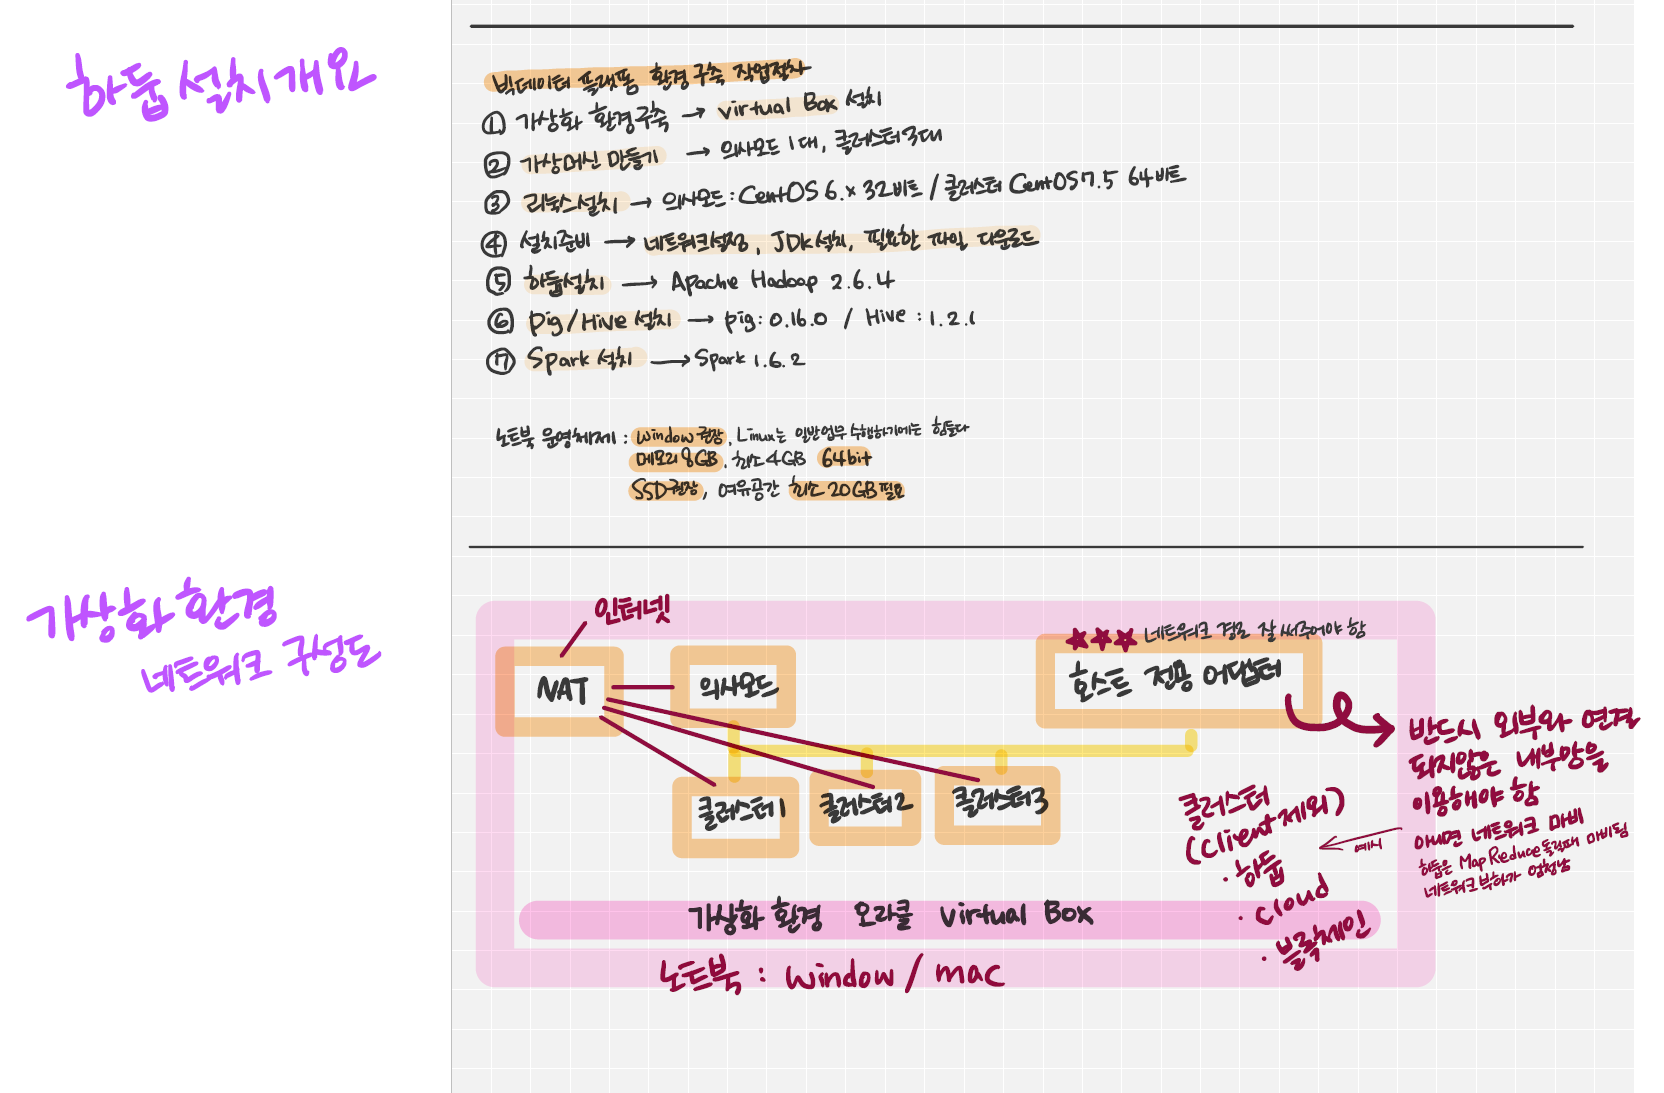 하둡 설치 개요
빅데이터 플랫폼 환경 구축 작업절차
① 가상화 환경구축 → virtual Box 설치
② 가상머신 만들기 → 의사모드 1대, 클러스터 3대
③ 리눅스설치 → 의사모드 : CentOS 6.x 32비트 / 클러스터 CentOS 7.5 64비트
④ 설치준비 → 네트워크설정, JDK설치, 필요한 파일 다운로드
⑤ 하둡설치 → Apache Hadoop 2.6.4
⑥ Pig/Hive 설치 → pig : 0.16.0 / Hive : 1.2.1
⑦ Spark 설치 → Spark 1.6.2
노트북 운영체제 : window 권장, Linux는 일반업무 수행하기에는 힘들다
메모리 8GB, 최소 4GB 64bit
SSD권장, 여유공간 최소 20GB 필요
가상화 환경
네트워크 구성도
인터넷
★★★ 네트워크 경로 잘 써주어야 함
NAT
의사모드
호스트 전용 어댑터
반드시 외부와 연결
되지않은 내부망을
이용해야 함
아니면 네트워크 마비
하둡은 MapReduce 돌릴때 마비됨
네트워크 부하가 엄청남
예시
클러스터1
클러스터2
클러스터3
클러스터
(client 제외)
· 하둡
· cloud
· 블록체인
가상화 환경 오라클 virtual Box
노트북 : window / mac